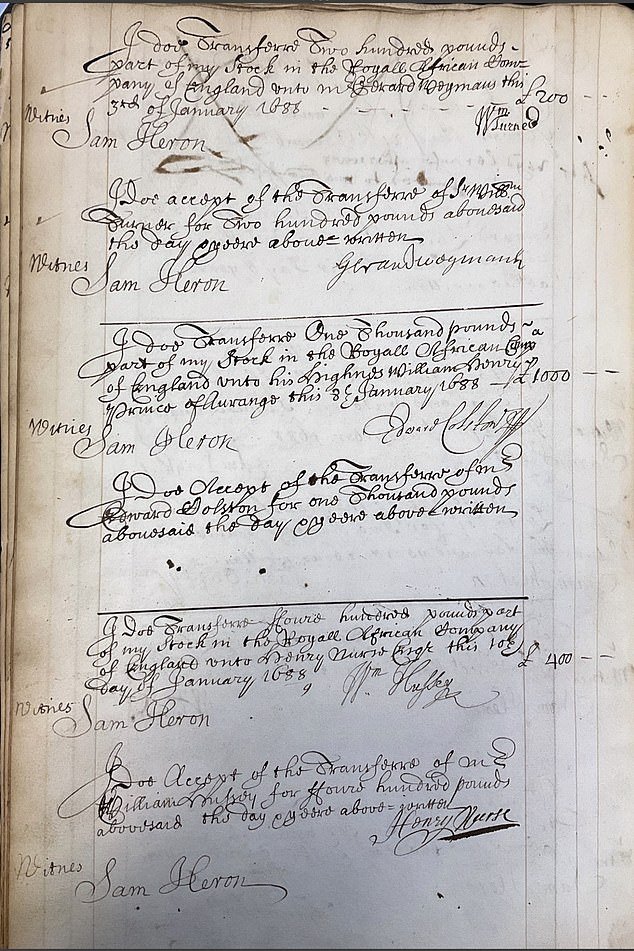 I doe Transferre Two hundred pounds
part of my Stock in the Royall African Com=
pany of England vnto mr Gerard Wegmans this
3rd of January 1688 £ 200
Witnes Wm Turner
Sam Heron
I Doe accept of the Transferre of Sr Willm
Turner for Two hundred pounds abovesaid
the day & yeere above= written
Witnes
Sam Heron
I doe Transferre One Thousand pounds
part of my Stock in the Royall African
of England vnto his Highnes William Henry
Prince of Aurange this January 1688 £ 1000
Witnes Edward Colston
Sam Heron
I Doe Accept of the Transferre of mr
Edward Colston for one Thousand pounds
abovesaid the day & yeere above= written
I Doe Transferre Foure hundred pounds part
of my Stock in the Royall African Company
of England vnto Henry Nurse Esqr this 10th £ 400
day of January 1688 Wm Hussey
Witnes
Sam Heron
I
Doe Accept of the Transferre of mr
William Hussey for Foure hundred pounds
abovesaid the day & yeere above= written
Henry Nurse
Witnes
Sam Heron